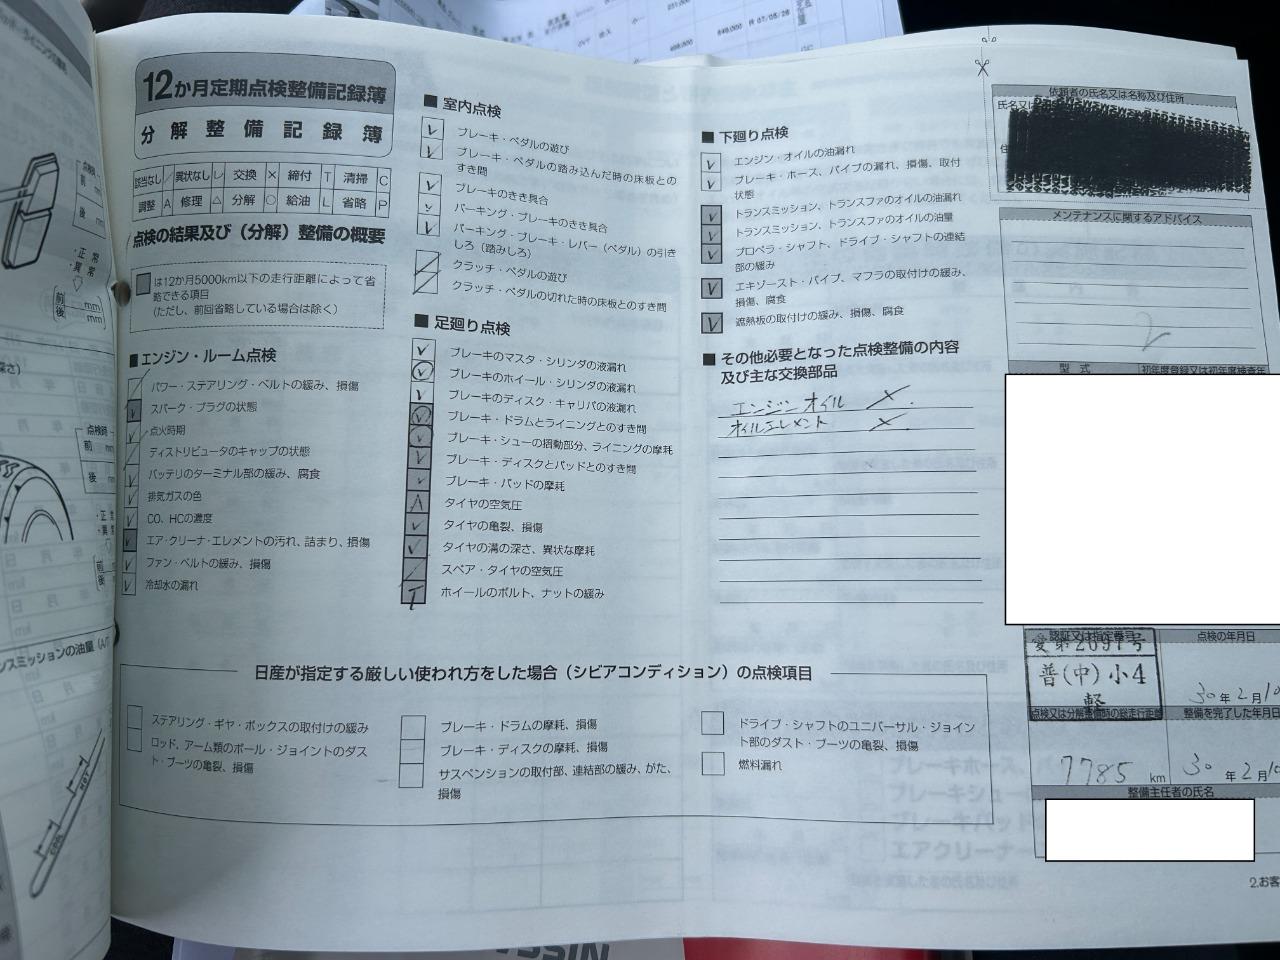 12か月定期点検整備記録簿
分解整備記録簿
該当なし ／ 異状なし レ 交換 × 締付 T 清掃 C
調整 A 修理 △ 分解 ○ 給油 L 省略 P
点検の結果及び（分解）整備の概要
は12か月5000km以下の走行距離によって省
略できる項目
（ただし、前回省略している場合は除く）
■エンジン・ルーム点検
パワー・ステアリング・ベルトの緩み、損傷
スパーク・プラグの状態
点火時期
ディストリビュータのキャップの状態
バッテリのターミナル部の緩み、腐食
排気ガスの色
CO、HCの濃度
エア・クリーナ・エレメントの汚れ、詰まり、損傷
ファン・ベルトの緩み、損傷
冷却水の漏れ
■室内点検
ブレーキ・ペダルの遊び
ブレーキ・ペダルの踏み込んだ時の床板との
すき間
ブレーキのきき具合
パーキング・ブレーキのきき具合
パーキング・ブレーキ・レバー（ペダル）の引き
しろ（踏みしろ）
クラッチ・ペダルの遊び
クラッチ・ペダルの切れた時の床板とのすき間
■足廻り点検
ブレーキのマスタ・シリンダの液漏れ
ブレーキのホイール・シリンダの液漏れ
ブレーキのディスク・キャリパの液漏れ
ブレーキ・ドラムとライニングとのすき間
ブレーキ・シューの摺動部分、ライニングの摩耗
ブレーキ・ディスクとパッドとのすき間
ブレーキ・パッドの摩耗
タイヤの空気圧
タイヤの亀裂、損傷
タイヤの溝の深さ、異状な摩耗
スペア・タイヤの空気圧
ホイールのボルト、ナットの緩み
■下廻り点検
エンジン・オイルの油漏れ
ブレーキ・ホース、パイプの漏れ、損傷、取付
状態
トランスミッション、トランスファのオイルの油漏れ
トランスミッション、トランスファのオイルの油量
プロペラ・シャフト、ドライブ・シャフトの連結
部の緩み
エキゾースト・パイプ、マフラの取付けの緩み、
損傷、腐食
遮熱板の取付けの緩み、損傷、腐食
■その他必要となった点検整備の内容
及び主な交換部品
エンジンオイル ×
オイルエレメント ×
日産が指定する厳しい使われ方をした場合（シビアコンディション）の点検項目
ステアリング・ギヤ・ボックスの取付けの緩み
ロッド、アーム類のボール・ジョイントのダス
ト・ブーツの亀裂、損傷
ブレーキ・ドラムの摩耗、損傷
ブレーキ・ディスクの摩耗、損傷
サスペンションの取付部、連結部の緩み、がた、
損傷
ドライブ・シャフトのユニバーサル・ジョイン
ト部のダスト・ブーツの亀裂、損傷
燃料漏れ
依頼者の氏名又は名称及び住所
メンテナンスに関するアドバイス
型式 初年度登録又は初年度検査年
認証又は指定番号 点検の年月日
愛第2097号
普(中)小4
軽
30年2月10
点検又は分解整備時の総走行距離 整備を完了した年月日
7785 km 30年2月10
整備主任者の氏名
2.お客